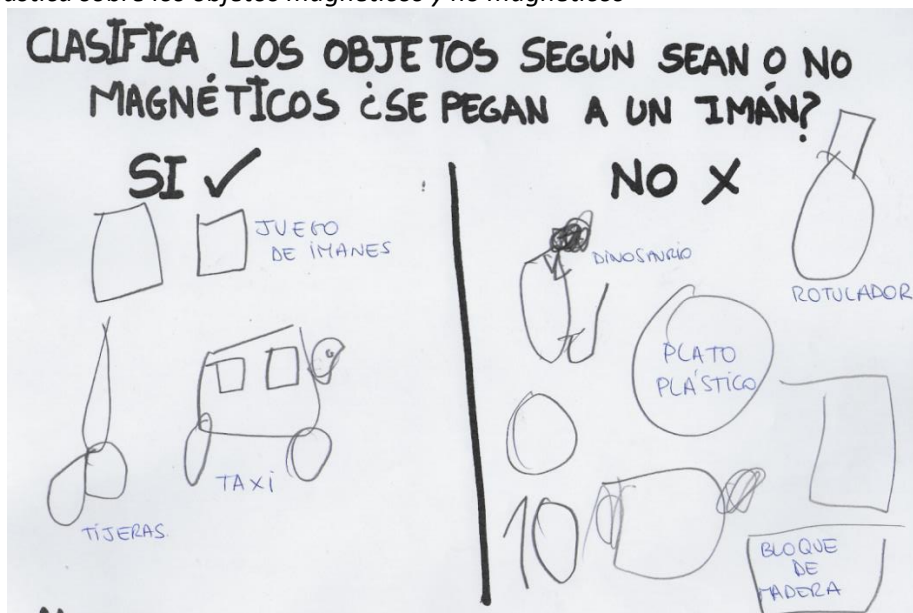 CLASÍFÍCA LOS OBJETOS SEGÚN SEAN O NO
MAGNÉTÍCOS ¿SE PEGAN A UN IMÁN?
SI ✓
NO X
JUEGO
DE IMANES
TIJERAS
TAXI
DINOSAURIO
ROTULADOR
PLATO
PLÁSTICO
10
BLOQUE
DE
MADERA